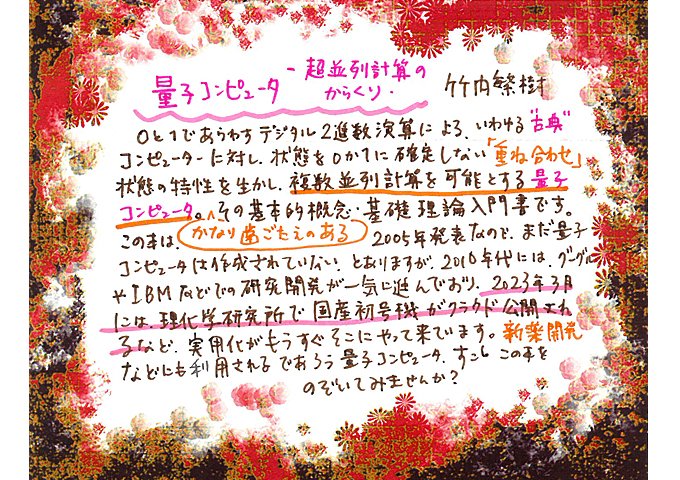 量子コンピュータ -超並列計算のからくり- 竹内繁樹
0と1であらわすデジタル2進数演算による、いわゆる"古典"
コンピューターに対し、状態を0か1に確定しない「重ね合わせ」
状態の特性を生かし、複数並列計算を可能とする量子
コンピュータ。その基本的概念・基礎理論入門書です。
この本は、かなり歯ごたえのある 2005年発表なので、まだ量子
コンピュータは作成されていない、とありますが、2010年代には、グーグル
やIBMなどでの研究開発が一気に進んでおり、2023年3月
には、理化学研究所で国産初号機がクラウド公開され
るなど、実用化がもうすぐそこにやって来ています。新薬開発
などにも利用されるであろう量子コンピュータ、すこしこの本を
のぞいてみませんか?